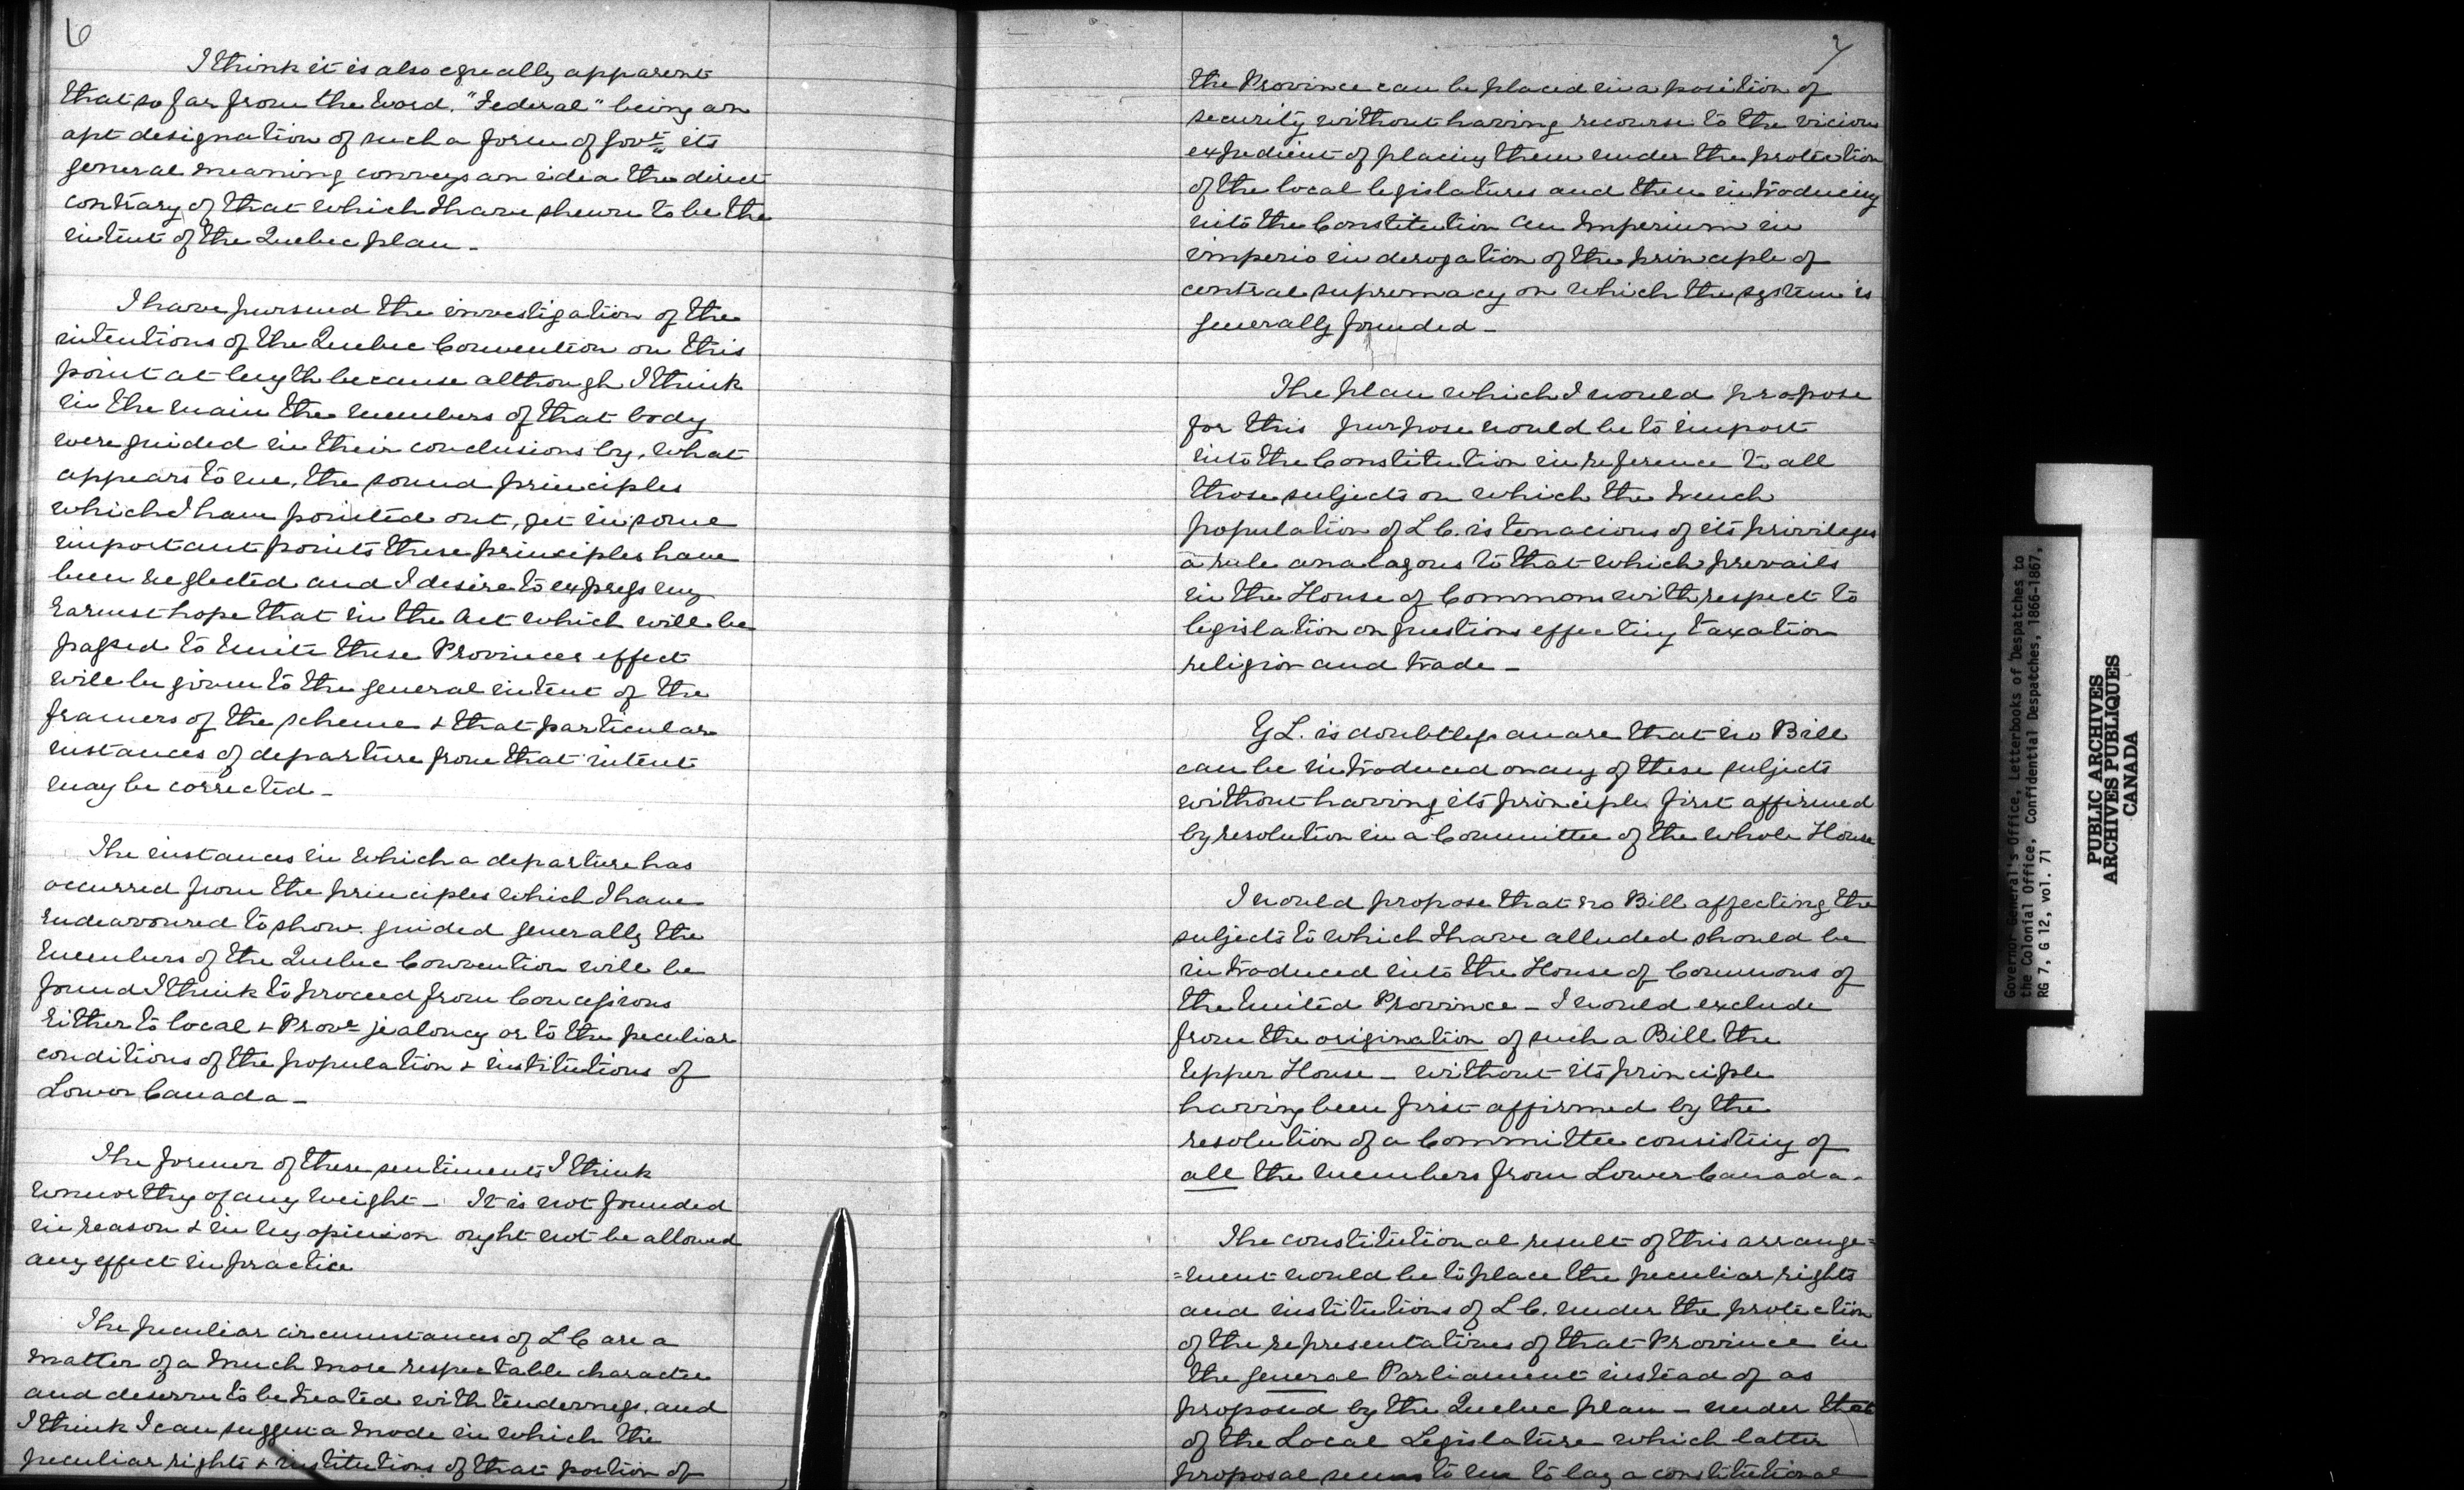 6
I think it is also equally apparent
that so far from the word. "Federal" being an
apt designation of such a form of Govt. its
general meaning conveys an idea the direct
contrary of that which I have shewn to be the
intent of the Quebec plan -
I have pursued the investigation of the
intentions of the Quebec Convention on this
point at length because although I think
in the main the members of that body
were guided in their conclusions by, what
appears to me, the sound principles
which I have pointed out, yet in some
important points these principles have
been neglected and I desire to express my
earnest hope that in the Act which will be
passed to unite these Provinces effect
will be given to the general intent of the
framers of the scheme & that particular
instances of departure from that intent
may be corrected -
The instances in which a departure has
occurred from the principles which I have
endeavoured to show guided generally the
members of the Quebec Convention will be
found I think to proceed from Concessions
either to local & Provl jealousy or to the peculiar
conditions of the population & institutions of
Lower Canada -
The former of these sentiments I think
unworthy of any weight - It is not founded
in reason & in my opinion ought not be allowed
any effect in practice
The peculiar circumstances of L C are a
matter of a much more respectable character
and deserve to be treated with tenderness. and
I think I can suggest a mode in which the
peculiar rights & institutions of that portion of
7
the Province can be placed in a position of
security without having recourse to the vicious
expedient of placing them under the protection
of the local legislatures and then introducing
into the Constitution an Imperium in
imperio in derogation of the principle of
central supremacy on which the system is
generally founded -
The plan which I would propose
for this purpose would be to import
into the Constitution in reference to all
those subjects on which the French
population of L C. is tenacious of its privileges
a rule analagous to that which prevails
in the House of Commons with respect to
legislation on questions effecting taxation
religion and trade -
Y L. is doubtless aware that no Bill
can be introduced on any of these subjects
without having its principle first affirmed
by resolution in a Committee of the whole House
I would propose that no Bill affecting the
subjects to which I have alluded should be
introduced into the House of Commons of
the United Province - I would exclude
from the origination of such a Bill the
Upper House - without its principle
having been first affirmed by the
resolution of a Committee consisting of
all the members from Lower Canada.
The constitutional result of this arrange=
=ment would be to place the peculiar rights
and institutions of L C. under the protection
of the representatives of that Province in
the general Parliament instead of as
proposed by the Quebec plan - under that
of the Local Legislature which latter
proposal seems to me to lay a constitutional
Governor General's Office, Letterbooks of Despatches to
the Colonial Office, Confidential Despatches, 1866-1867,
RG 7, G 12, vol. 71
PUBLIC ARCHIVES
ARCHIVES PUBLIQUES
CANADA